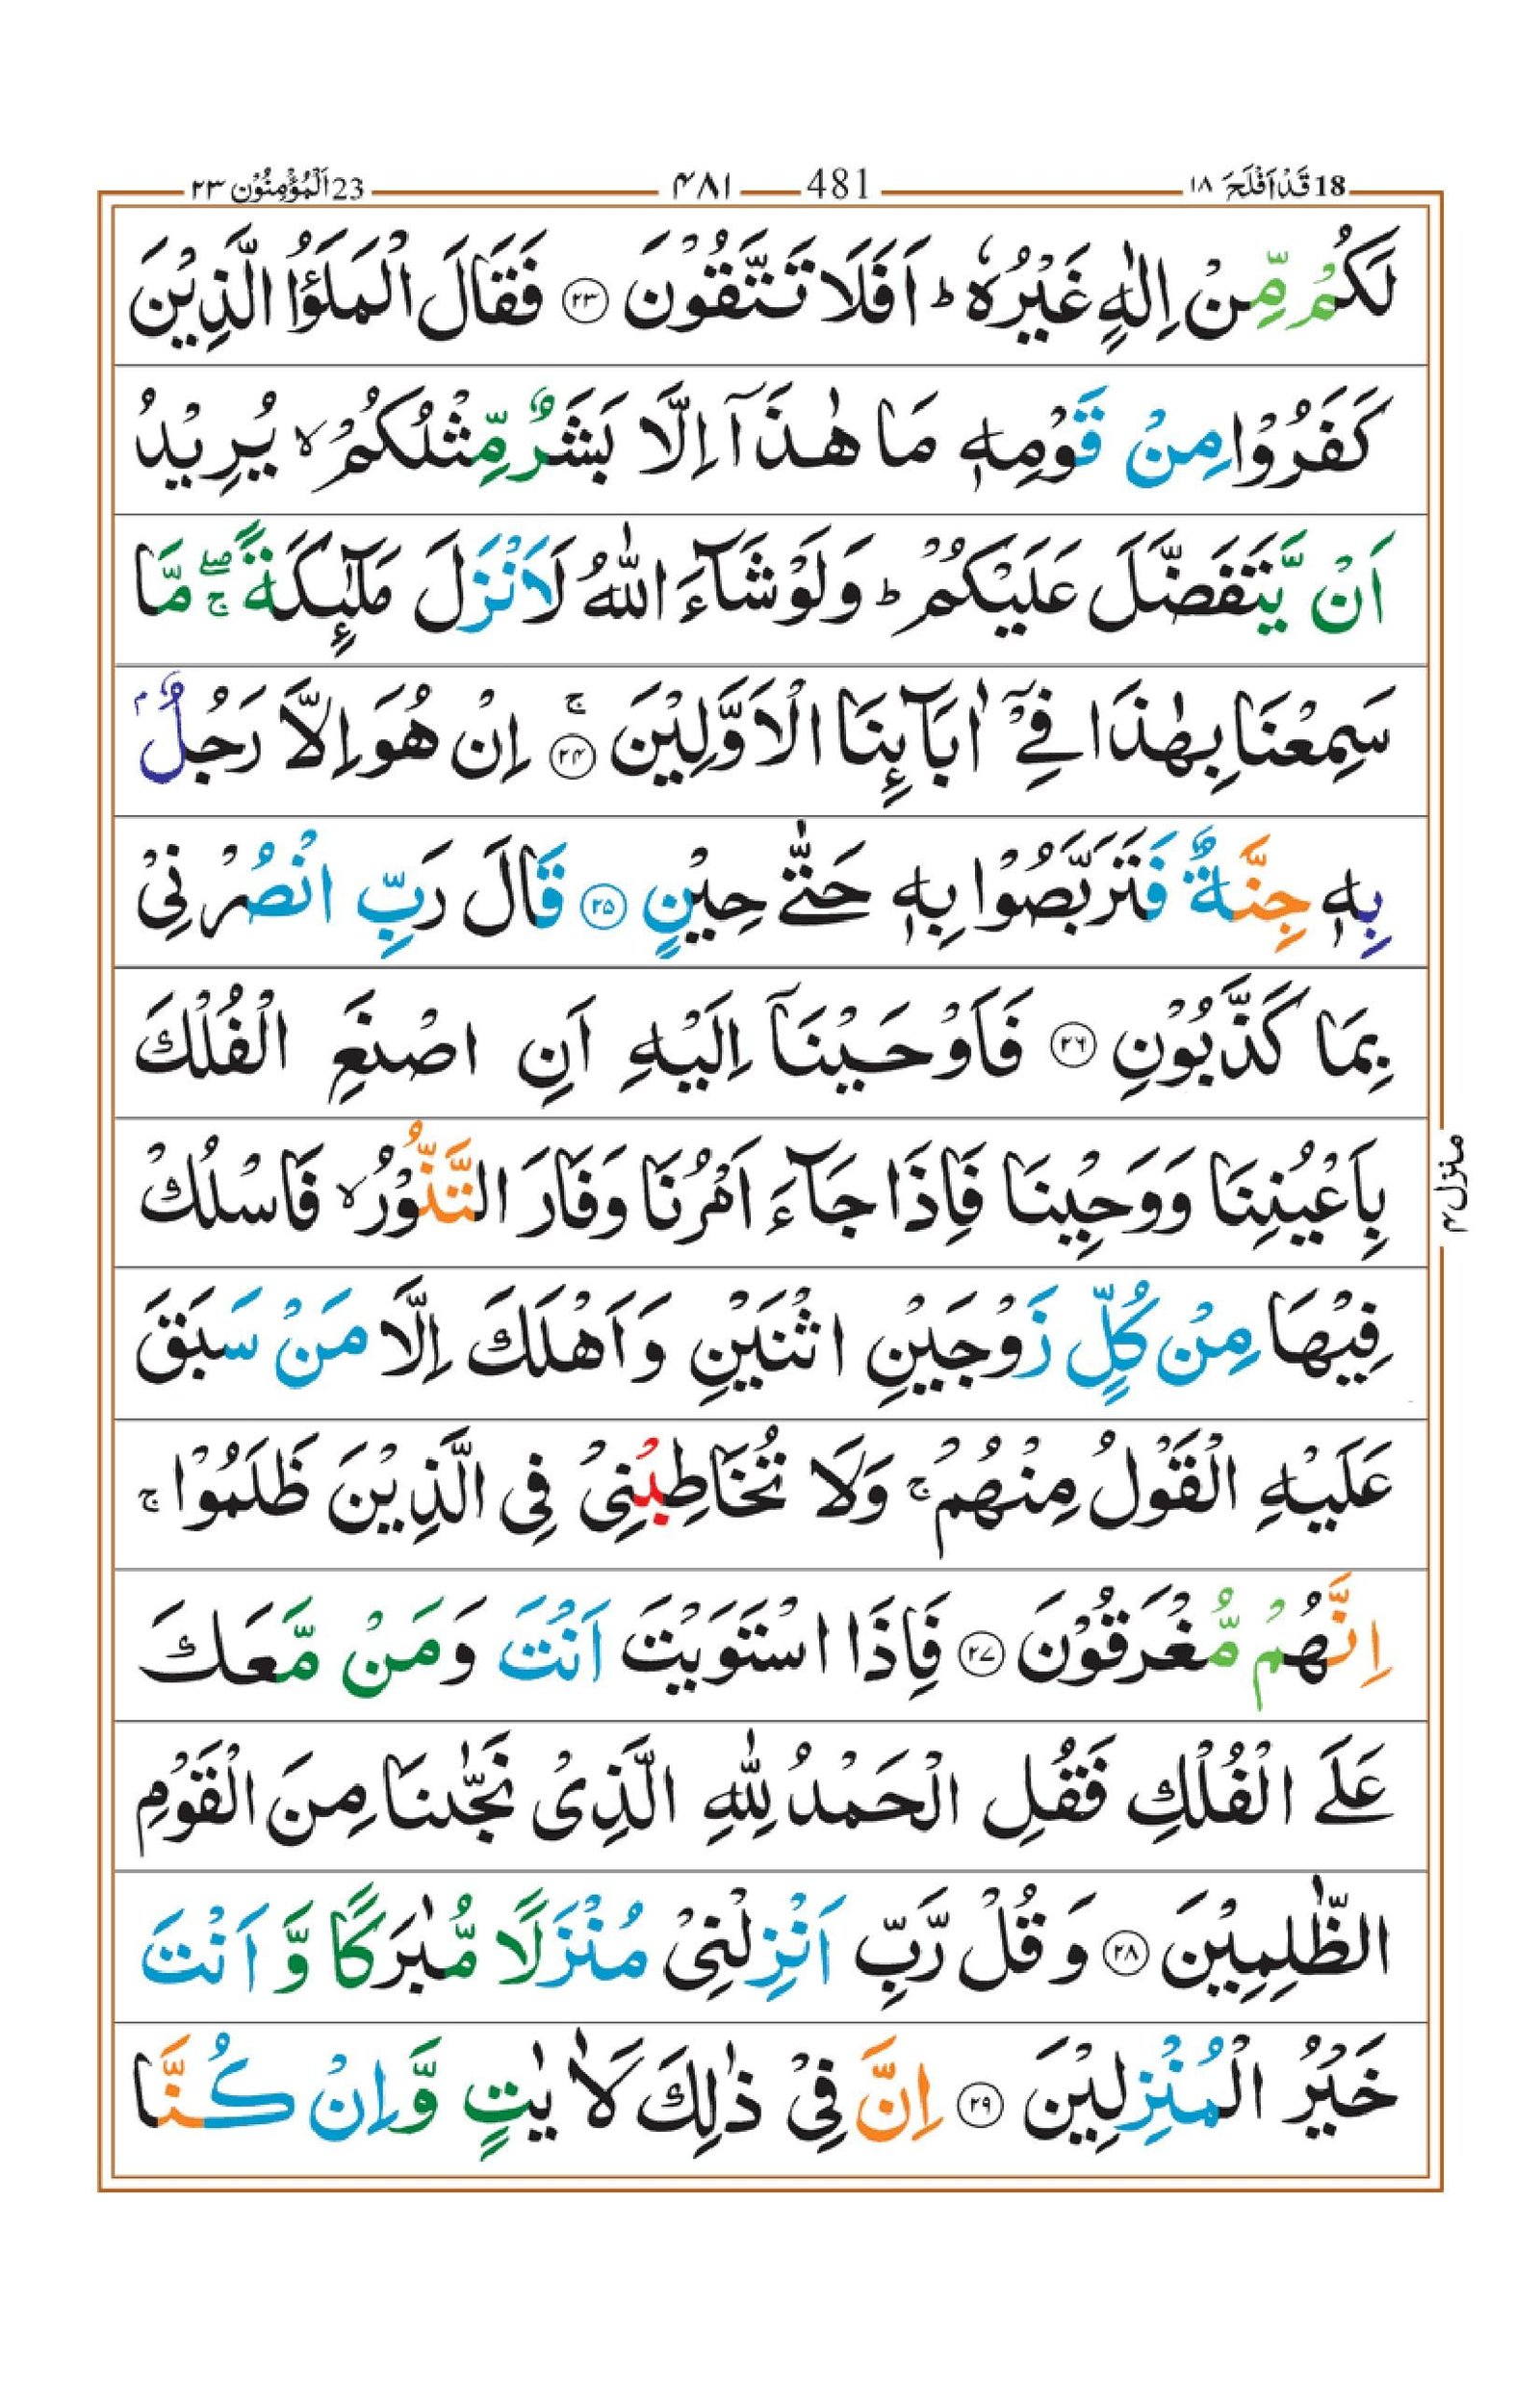 18 قَدْ اَفْلَحَ ١٨
481 ۴۸۱
23 اَلْمُؤْمِنُوْن ٢٣
لَكُمْ مِّنْ اِلٰهٍ غَيْرُهٗ ؕ اَفَلَا تَتَّقُوْنَ ﴿۲۳﴾ فَقَالَ الْمَلَؤُا الَّذِيْنَ
كَفَرُوْا مِنْ قَوْمِهٖ مَا هٰذَاۤ اِلَّا بَشَرٌ مِّثْلُكُمْ ۙ يُرِيْدُ
اَنْ يَّتَفَضَّلَ عَلَيْكُمْ ؕ وَلَوْ شَآءَ اللّٰهُ لَاَنْزَلَ مَلٰٓئِكَةً ۖۚ مَّا
سَمِعْنَا بِهٰذَا فِيْۤ اٰبَآئِنَا الْاَوَّلِيْنَ ﴿۲۴﴾ ۚ اِنْ هُوَ اِلَّا رَجُلٌۢ
بِهٖ جِنَّةٌ فَتَرَبَّصُوْا بِهٖ حَتّٰى حِيْنٍ ﴿۲۵﴾ قَالَ رَبِّ انْصُرْنِيْ
بِمَا كَذَّبُوْنِ ﴿۲۶﴾ فَاَوْحَيْنَاۤ اِلَيْهِ اَنِ اصْنَعِ الْفُلْكَ
بِاَعْيُنِنَا وَوَحْيِنَا فَاِذَا جَآءَ اَمْرُنَا وَفَارَ التَّنُّوْرُ ۙ فَاسْلُكْ
منزل ۴
فِيْهَا مِنْ كُلٍّ زَوْجَيْنِ اثْنَيْنِ وَاَهْلَكَ اِلَّا مَنْ سَبَقَ
عَلَيْهِ الْقَوْلُ مِنْهُمْ ۚ وَلَا تُخَاطِبْنِيْ فِي الَّذِيْنَ ظَلَمُوْا ۚ
اِنَّهُمْ مُّغْرَقُوْنَ ﴿۲۷﴾ فَاِذَا اسْتَوَيْتَ اَنْتَ وَمَنْ مَّعَكَ
عَلَى الْفُلْكِ فَقُلِ الْحَمْدُ لِلّٰهِ الَّذِيْ نَجّٰىنَا مِنَ الْقَوْمِ
الظّٰلِمِيْنَ ﴿۲۸﴾ وَقُلْ رَّبِّ اَنْزِلْنِيْ مُنْزَلًا مُّبٰرَكًا وَّ اَنْتَ
خَيْرُ الْمُنْزِلِيْنَ ﴿۲۹﴾ اِنَّ فِيْ ذٰلِكَ لَاٰيٰتٍ وَّاِنْ كُنَّا